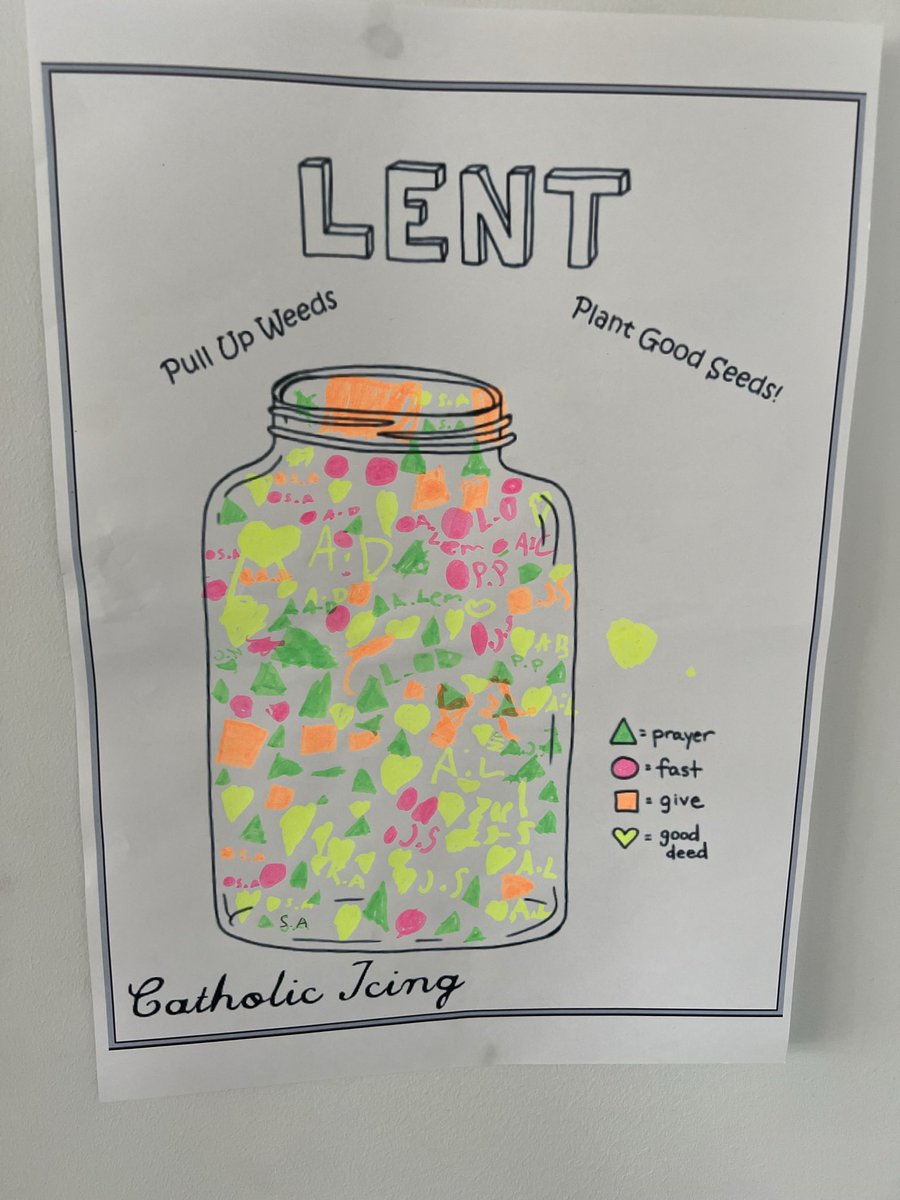 LENT
Pull Up Weeds
Plant Good Seeds!
S.A
S.A
S.A
S.A
A.D
L.O
A.
Lem
A.C
S.A
A.D
P.P
A.D
A.Lem
J.S
J.S
A.B
J.N
L.OD
P.P
A.L
= prayer
= fast
A.L
= give
J.S
= good
deed
S.A
A.L
S.A
R.A
J.S
S.A
A.L
S.A
Catholic Icing